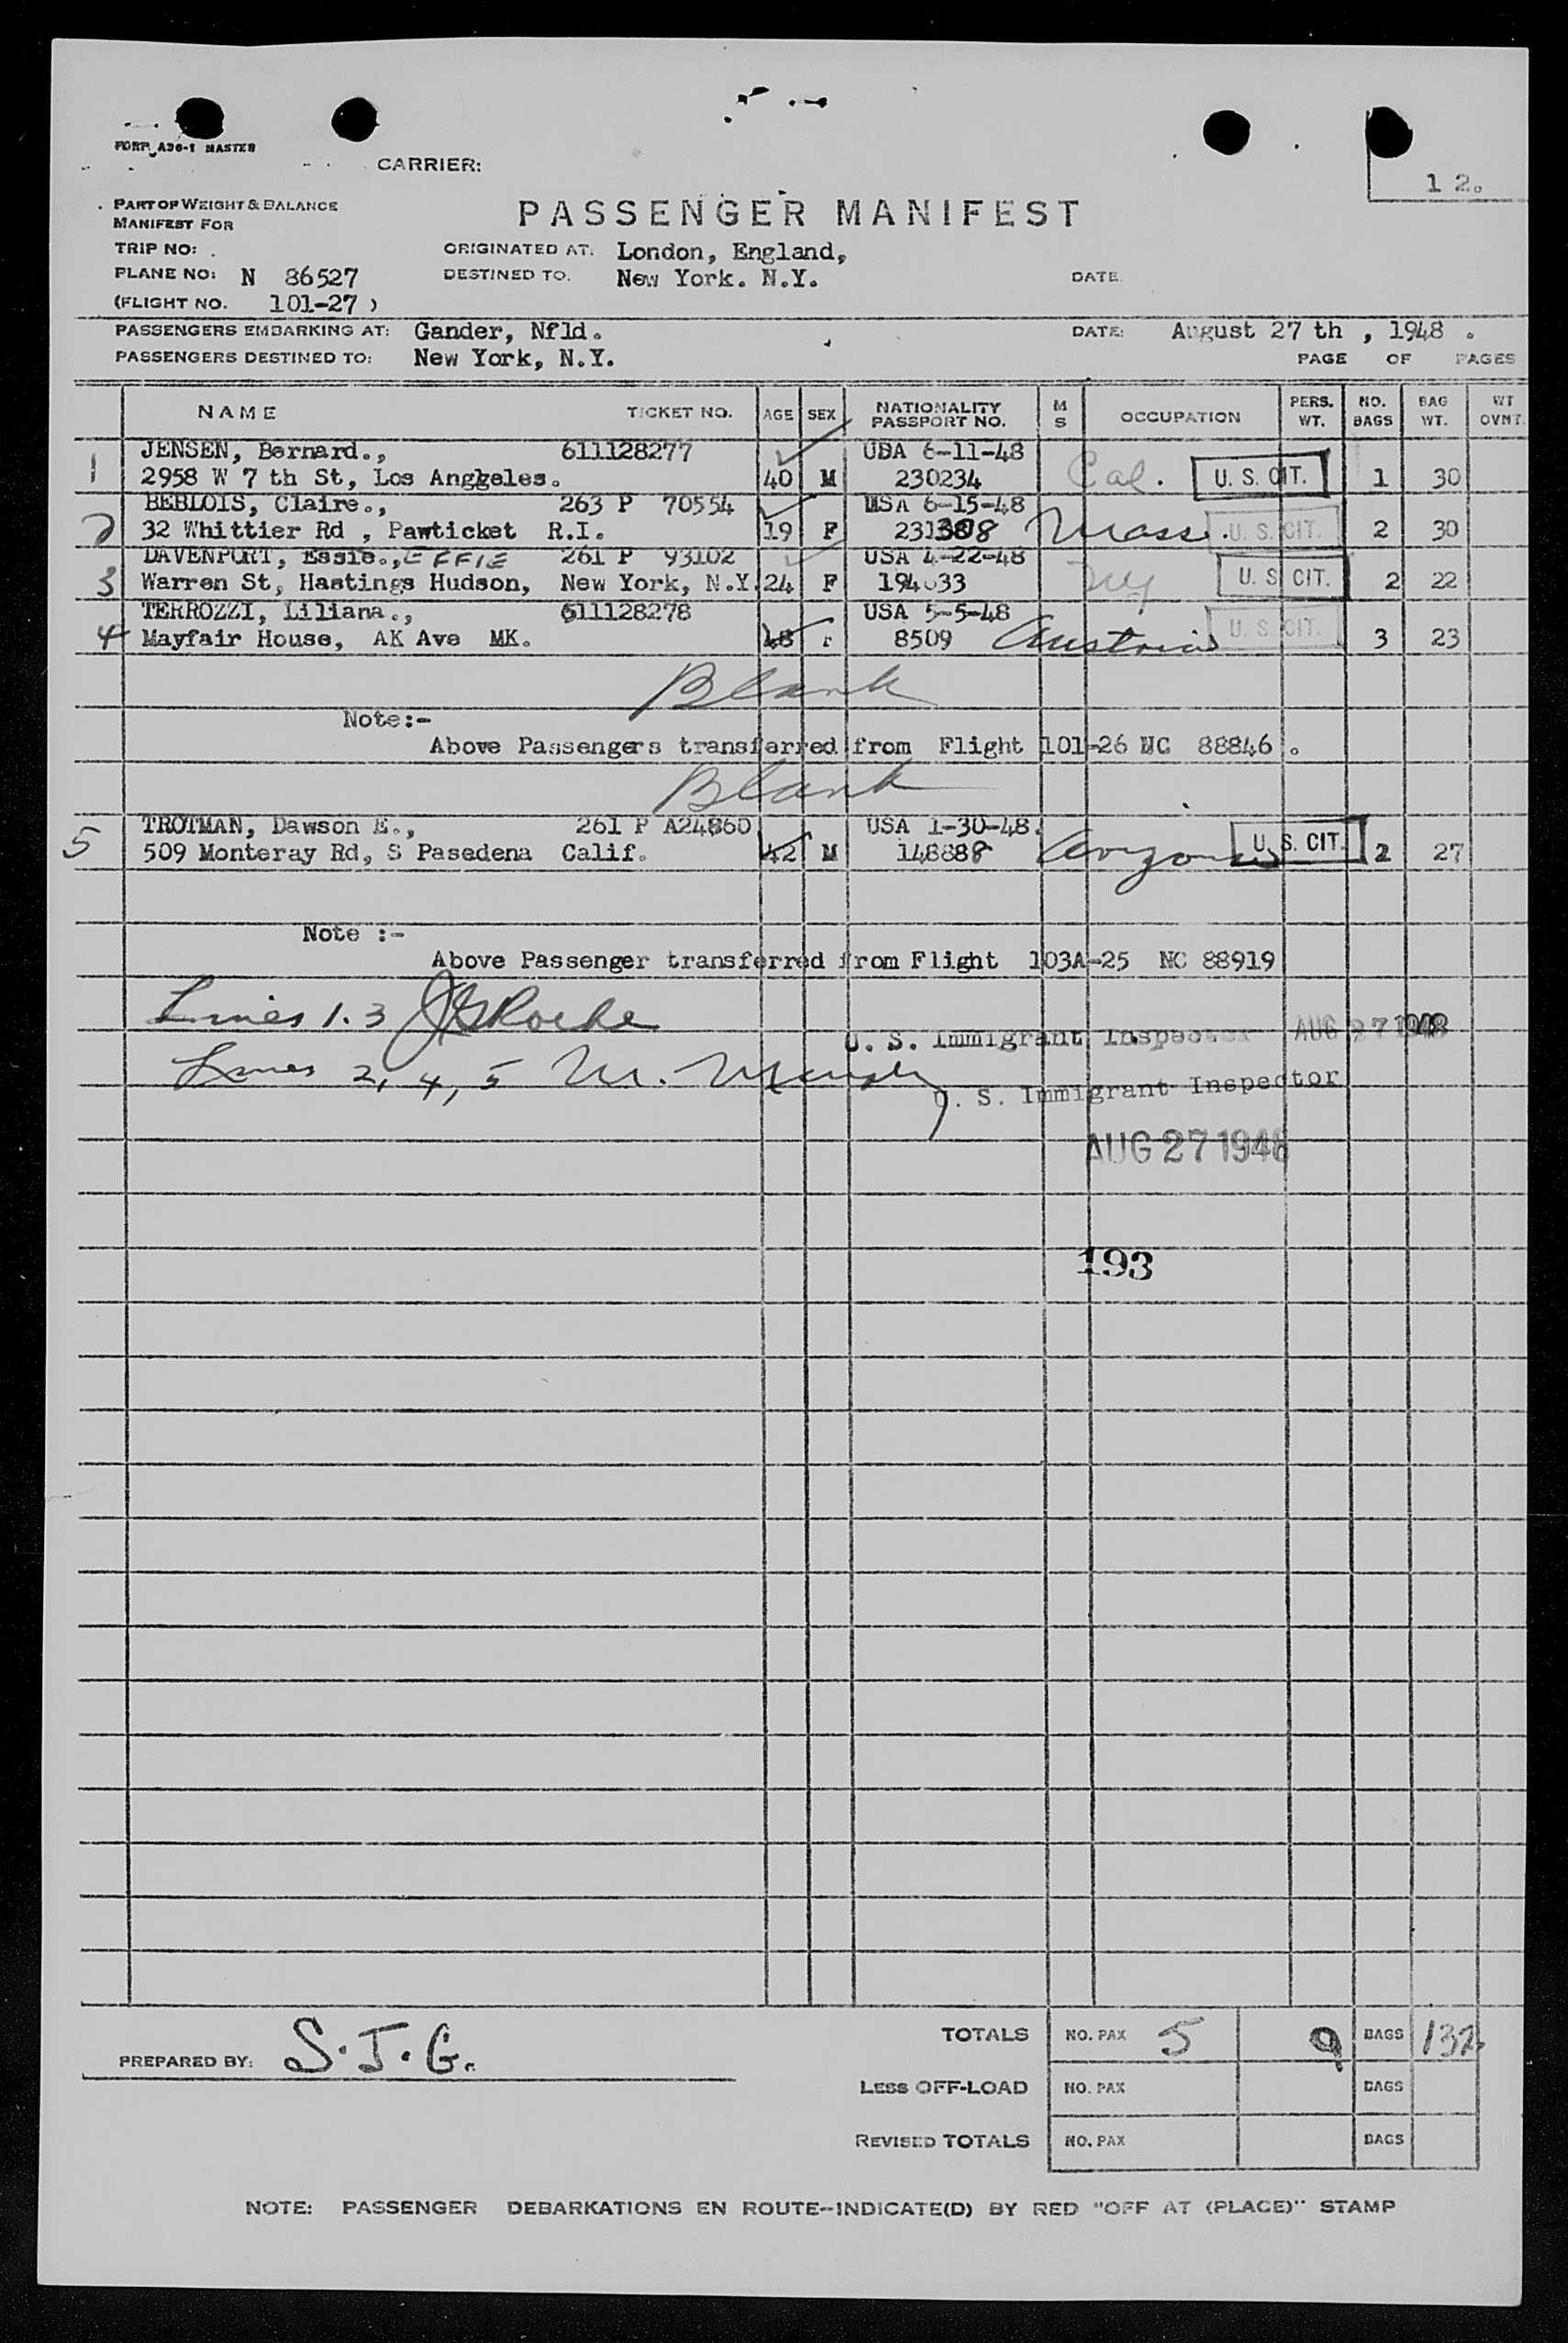 FORM A30-1 MASTER
CARRIER:
12.
PART OF WEIGHT & BALANCE
MANIFEST FOR
PASSENGER MANIFEST
TRIP NO: . ORIGINATED AT: London, England,
PLANE NO: N 86527 DESTINED TO. New York. N.Y. DATE.
(FLIGHT NO. 101-27 )
PASSENGERS EMBARKING AT: Gander, Nfld. DATE: August 27 th , 1948 .
PASSENGERS DESTINED TO: New York, N.Y. PAGE OF PAGES
NAME TICKET NO. AGE SEX NATIONALITY PASSPORT NO. M S OCCUPATION PERS. WT. NO. BAGS BAG WT. WT OVNT.
JENSEN, Bernard., 611128277 UBA 6-11-48
1 2958 W 7 th St, Los Anggeles. 40 M 230234 Cal. U. S. CIT. 1 30
BEBLOIS, Claire., 263 P 70554 USA 6-15-48
2 32 Whittier Rd , Pawticket R.I. 19 F Mass. U. S. CIT. 2 30
DAVENPORT, Essie., EFFIE 261 P 93102 USA 4-22-48
3 Warren St, Hastings Hudson, New York, N.Y. 24 F NY U. S. CIT. 2 22
TERROZZI, Liliana., 611128278 USA 5-5-48
4 Mayfair House, AK Ave MK. 48 F 8509 Austria U. S. CIT. 3 23
Blank
Note:-
Above Passengers transferred from Flight 101-26 NC 88846 .
Blank
TROTMAN, Dawson E., 261 P A24860 USA 1-30-48.
5 509 Monteray Rd, S Pasedena Calif. 42 M 148888 Arizona U. S. CIT. 2 27
Note :-
Above Passenger transferred from Flight 103A-25 NC 88919
Lines 1.3 JGRoche
U. S. Immigrant Inspector AUG 27 1948
Lines 2, 4, 5 M.
U. S. Immigrant Inspector
AUG 27 1948
193
TOTALS NO. PAX 5 9 BAGS 132
PREPARED BY: S.J.G.
LESS OFF-LOAD NO. PAX BAGS
REVISED TOTALS NO. PAX BAGS
NOTE: PASSENGER DEBARKATIONS EN ROUTE--INDICATE(D) BY RED "OFF AT (PLACE)" STAMP